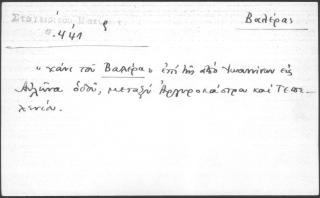 Βαλέρα
σ. 441
"χάνι τοῦ Βαλέρα" ἐπὶ τῆς ἀπὸ Ἰωαννίνων εἰς
Αὐλῶνα ὁδοῦ, μεταξὺ Ἀργυροκάστρου καὶ Τεπε-
λενίου.